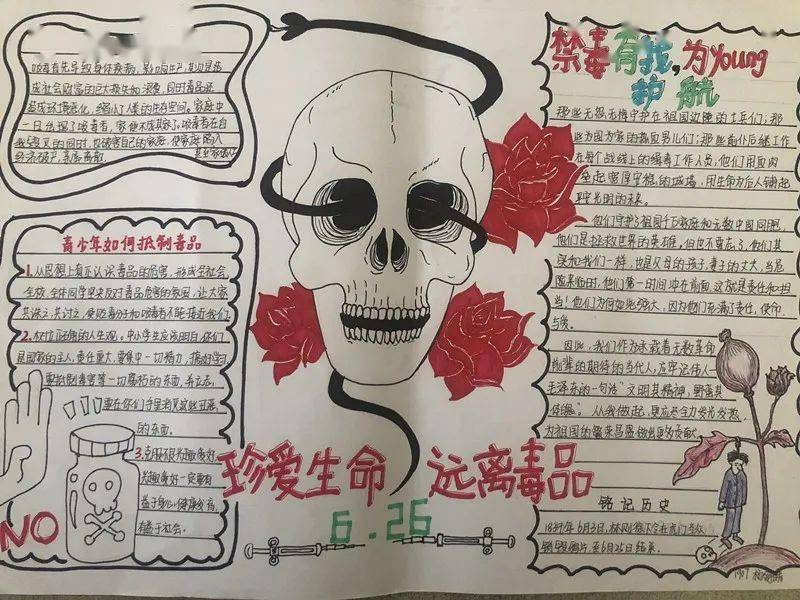 吸毒首先导致身体疾病,影响生产,其次是造
成社会财富的巨大损失和浪费,同时毒品还
造成环境恶化,缩小了人类的生存空间。家庭中
一旦出现了吸毒者,家便不成其家了。吸毒者在自
我毁灭的同时,也破害自己的家庭,使家庭陷入
经济破产、亲属离散
青少年如何抵制毒品
1.从思想上真正认识毒品的危害,形成全社会、
全校、全体同学坚决反对毒品危害的氛围,让大家
共诛之,共讨之,使贩毒分子和吸毒者不能接近我们
2.树立正确的人生观。中小学生应该明白,你们
是国家的主人,责任重大,要集中一切精力,搞好学习
要抵制毒害等一切腐朽的东西,
要在你们手里消灭这些丑恶
的东西。
3.
兴趣爱好一定要有
益于身心健康发育,
有益于社会。
NO
珍爱生命 远离毒品
6.26
禁毒有我,为Young
护航
那些无怨无悔守护在祖国边陲的士兵们;那
些为国为家的热血男儿们;那些前仆后继工作
在每个战线上的缉毒工作人员,他们用血肉
筑起宽厚安稳的城墙,用生命为后人铺起
光明的未来。
他们守护了祖国千万家庭和无数中国同胞,
他们是拯救世界的英雄。但也不要忘了,他们其
实和我们一样,也是父母的孩子,妻子的丈夫,当危
险来临时,他们第一时间冲在前面,这就是责任和担
当!他们为何如此强大,因为他们充满了责任、使命
与爱。
因此,我们作为承载着无数革命
前辈的期待的当代人,应牢记伟人
毛泽东的一句话“文明其精神,野蛮其
体魄”。从我做起,更应尽全力
为祖国的繁荣昌盛做出更多贡献。
铭记历史
1839年6月3日,林则徐下令在虎门当众
销毁鸦片,至6月25日结束。